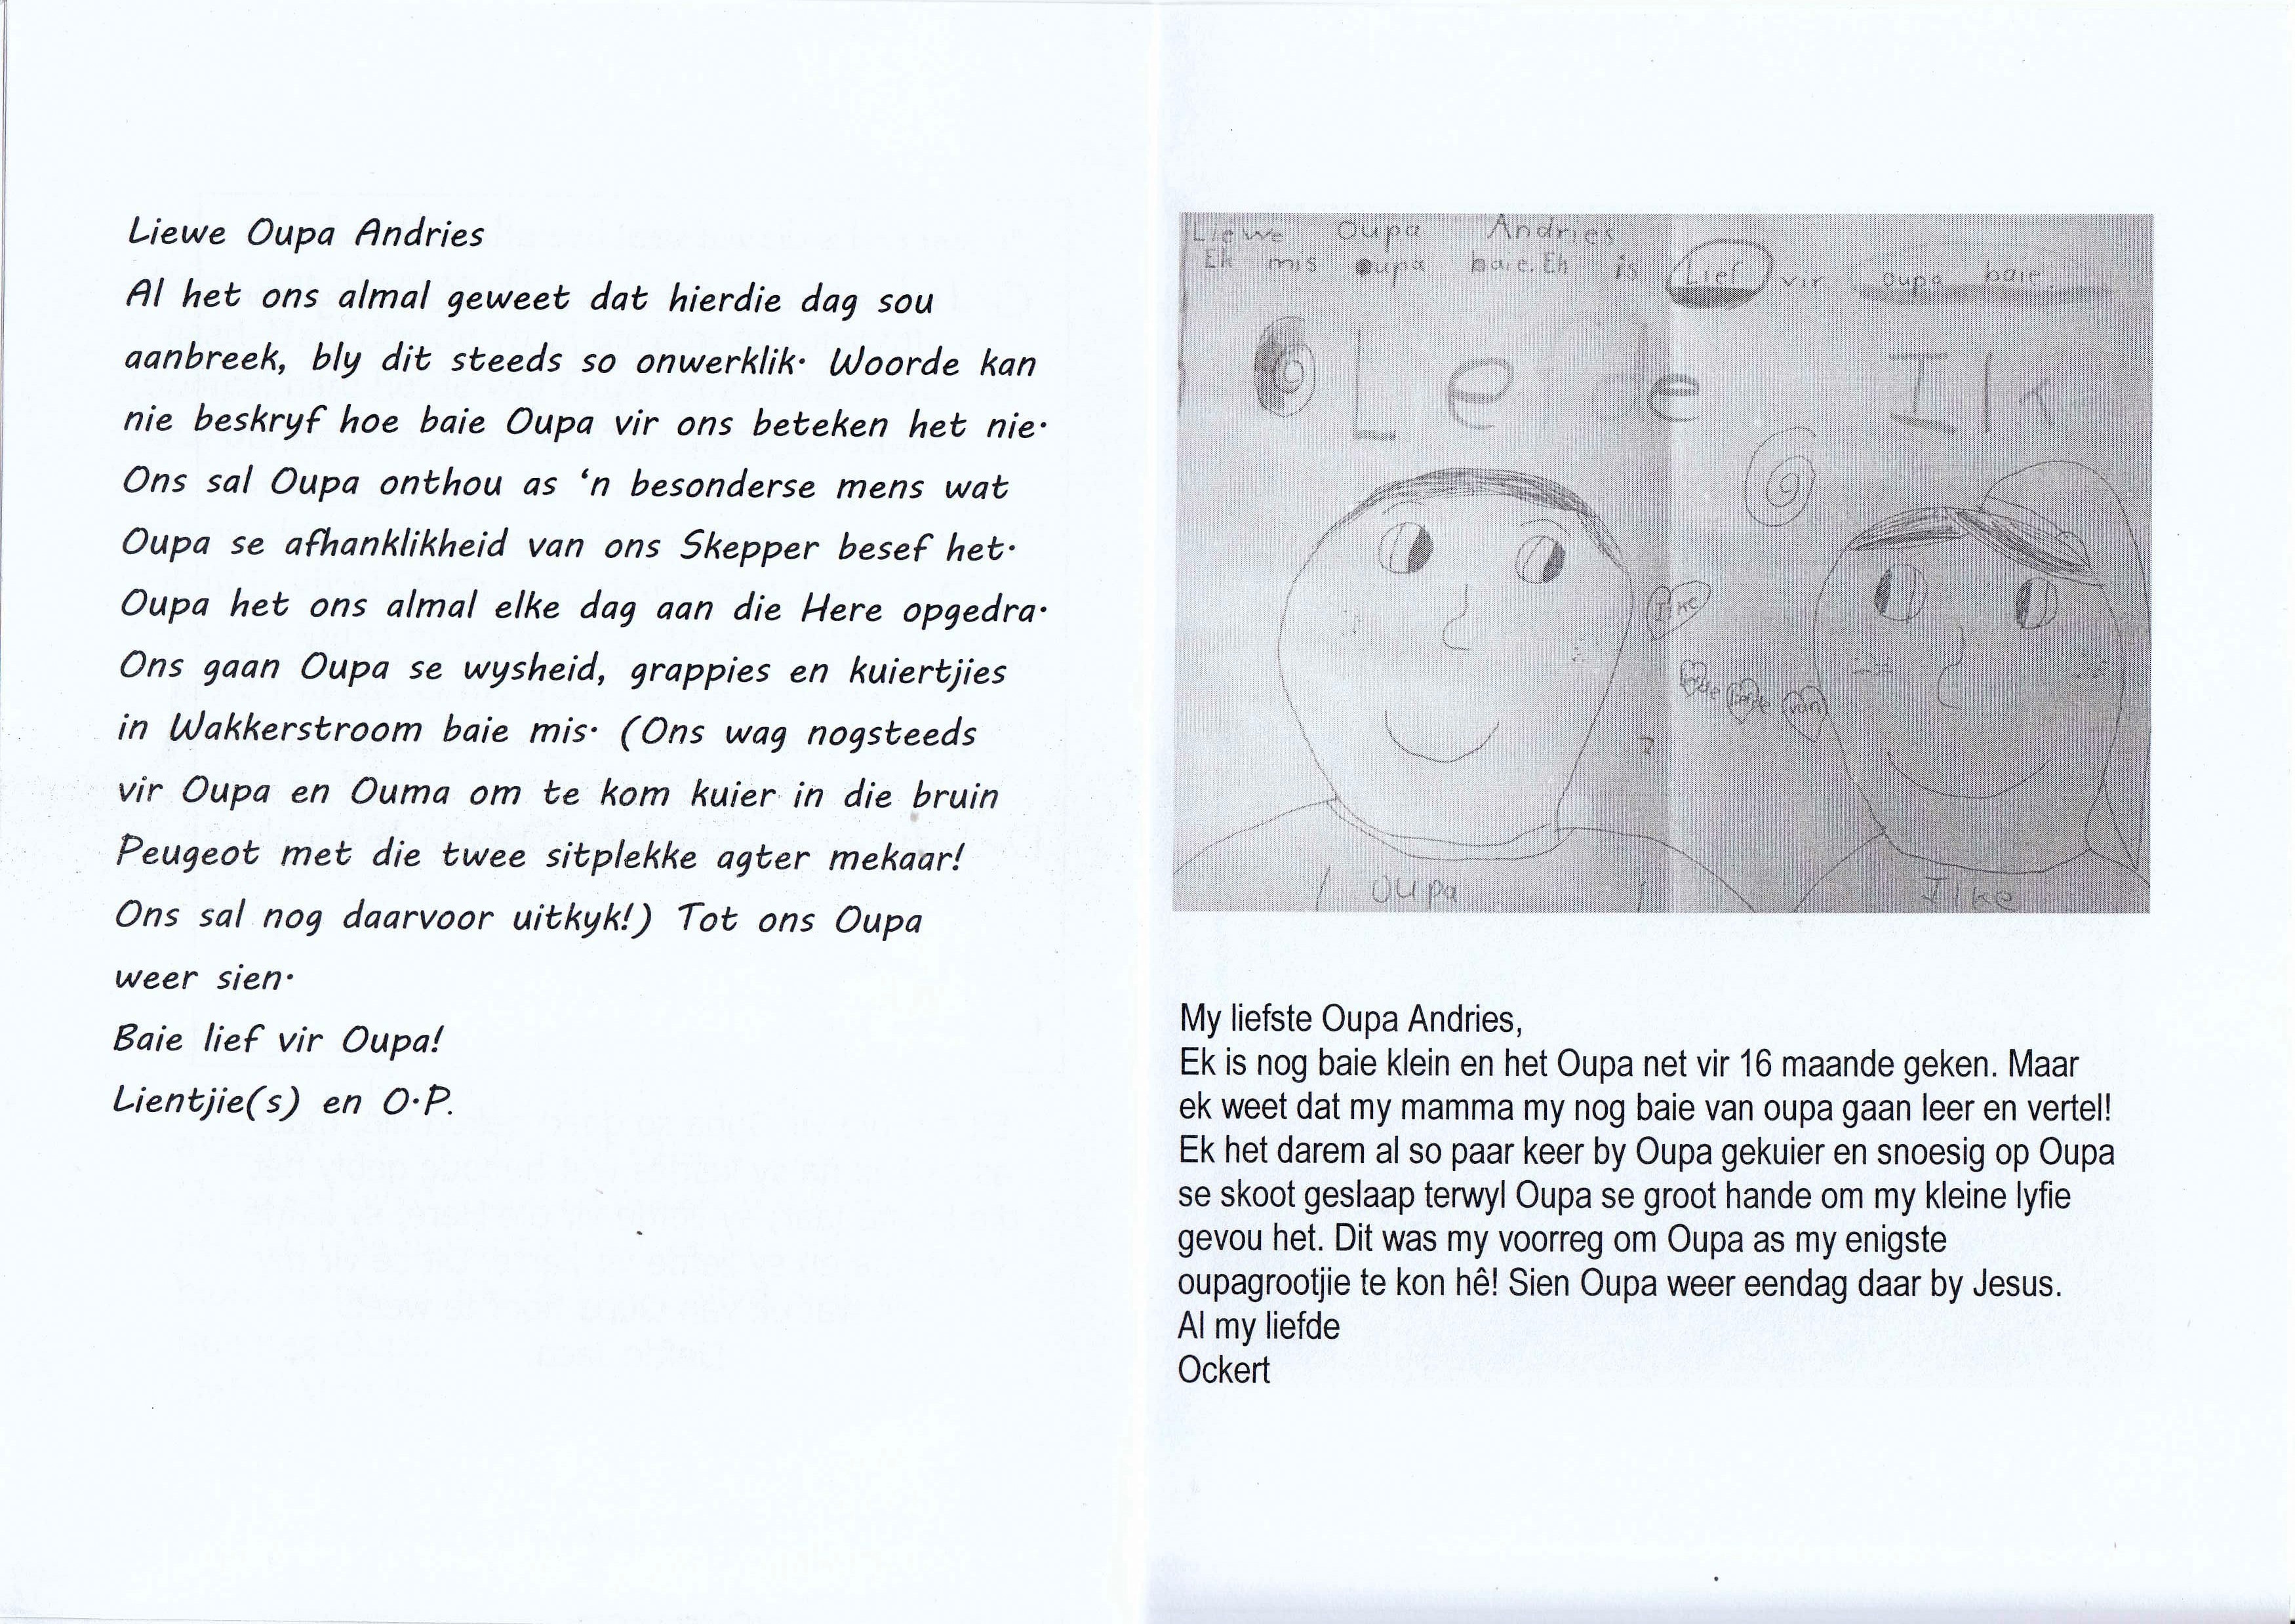 Liewe Oupa Andries
Al het ons almal geweet dat hierdie dag sou
aanbreek, bly dit steeds so onwerklik. Woorde kan
nie beskryf hoe baie Oupa vir ons beteken het nie.
Ons sal Oupa onthou as 'n besonderse mens wat
Oupa se afhanklikheid van ons Skepper besef het.
Oupa het ons almal elke dag aan die Here opgedra.
Ons gaan Oupa se wysheid, grappies en kuiertjies
in Wakkerstroom baie mis. (Ons wag nogsteeds
vir Oupa en Ouma om te kom kuier in die bruin
Peugeot met die twee sitplekke agter mekaar!
Ons sal nog daarvoor uitkyk!) Tot ons Oupa
weer sien.
Baie lief vir Oupa!
Lientjie(s) en O.P.
Liewe Oupa Andries
Ek mis oupa baie. Ek is Lief vir oupa baie.
Ilke
liefde van
Oupa Ilke
My liefste Oupa Andries,
Ek is nog baie klein en het Oupa net vir 16 maande geken. Maar
ek weet dat my mamma my nog baie van oupa gaan leer en vertel!
Ek het darem al so paar keer by Oupa gekuier en snoesig op Oupa
se skoot geslaap terwyl Oupa se groot hande om my kleine lyfie
gevou het. Dit was my voorreg om Oupa as my enigste
oupagrootjie te kon hê! Sien Oupa weer eendag daar by Jesus.
Al my liefde
Ockert